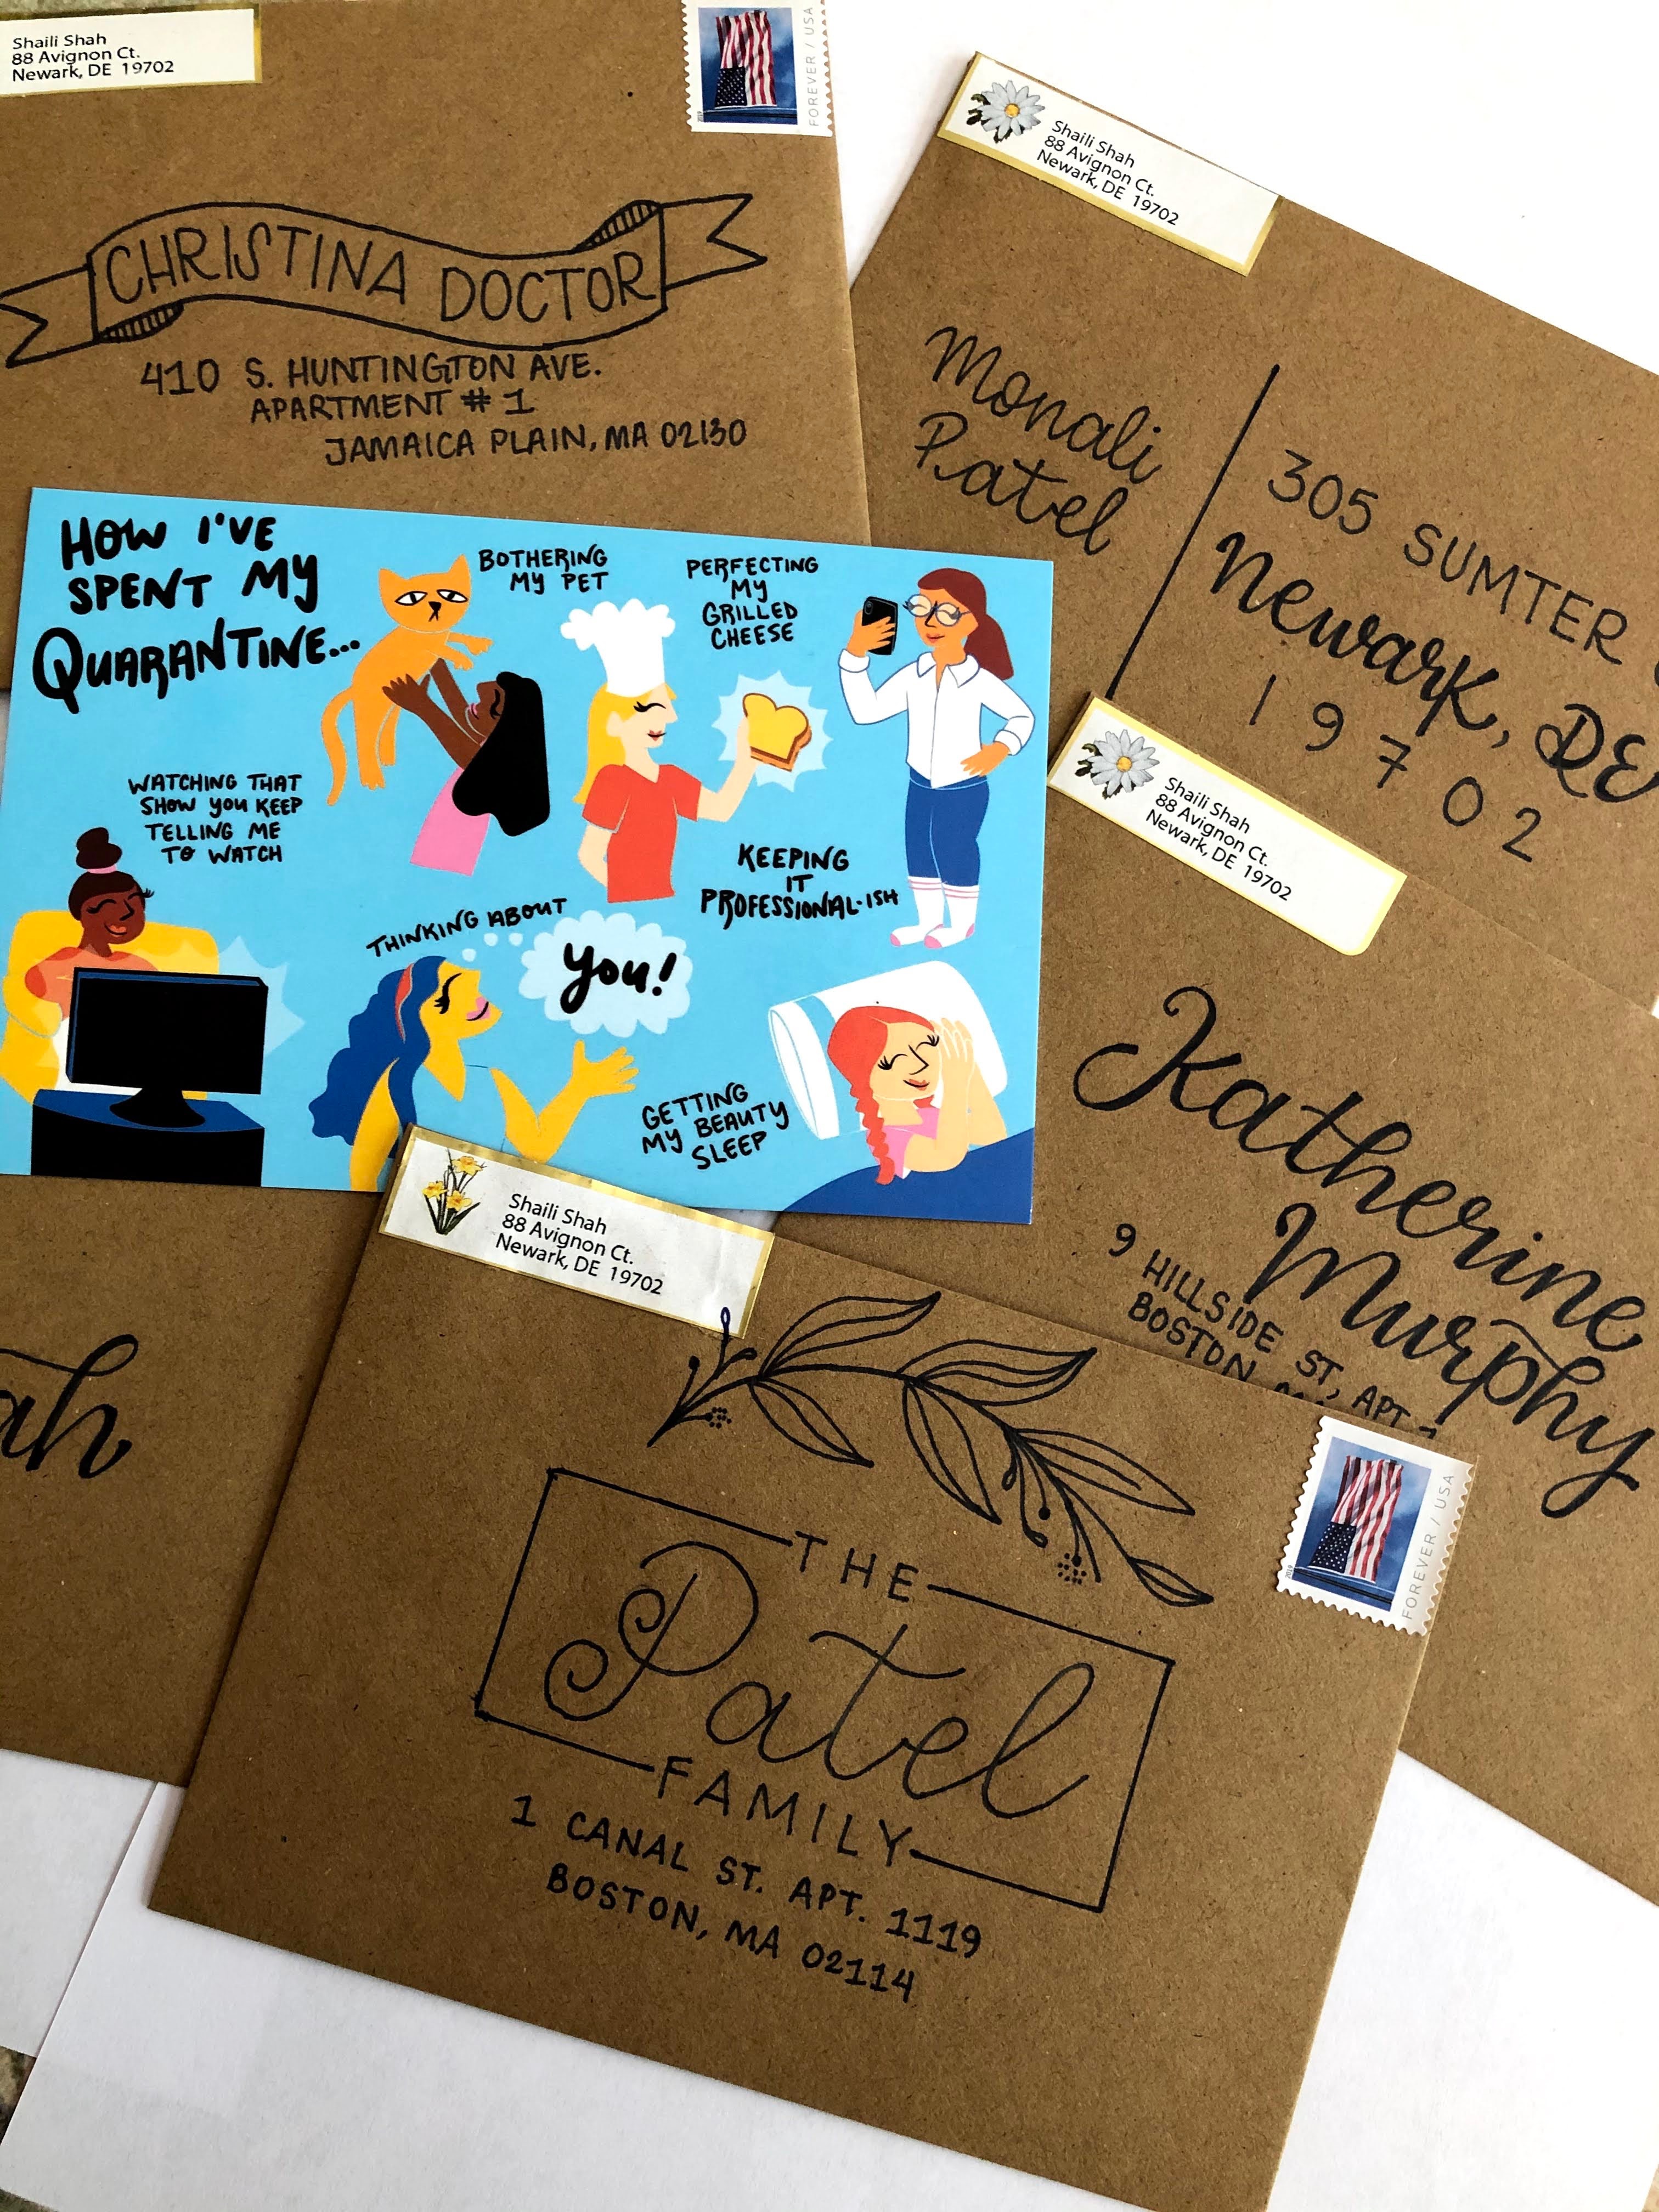 Shaili Shah
88 Avignon Ct.
Newark, DE 19702
FOREVER / USA
CHRISTINA DOCTOR
410 S. HUNTINGTON AVE.
APARTMENT # 1
JAMAICA PLAIN, MA 02130
Shaili Shah
88 Avignon Ct.
Newark, DE 19702
Monali
Patel
305 SUMTER
Newark, DE
19702
HOW I'VE
SPENT MY
QUARANTINE...
BOTHERING
MY PET
PERFECTING
MY
GRILLED
CHEESE
WATCHING THAT
SHOW YOU KEEP
TELLING ME
TO WATCH
THINKING ABOUT
You!
KEEPING
IT
PROFESSIONAL-ISH
GETTING
MY BEAUTY
SLEEP
Shaili Shah
88 Avignon Ct.
Newark, DE 19702
Katherine
Murphy
9 HILLSIDE ST, APT
BOSTON
Shaili Shah
88 Avignon Ct.
Newark, DE 19702
FOREVER / USA
THE
Patel
FAMILY
1 CANAL ST. APT. 1119
BOSTON, MA 02114
ah